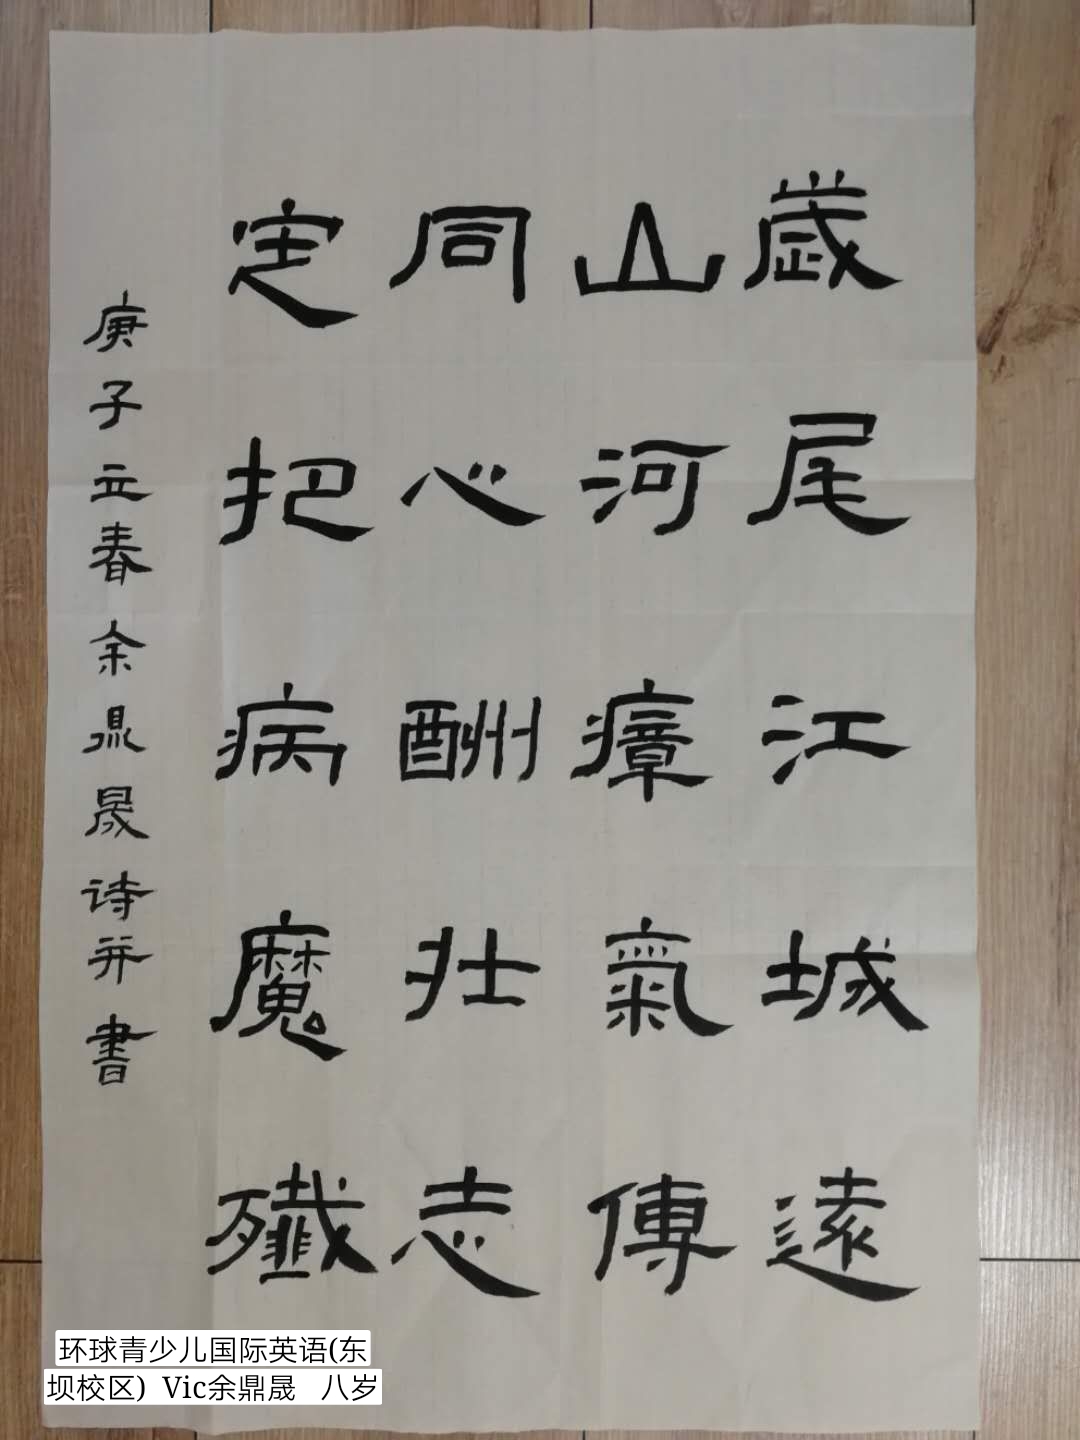 歲尾江城遠
山河瘴氣傳
同心酬壯志
定把病魔殲
庚子立春余鼎晟诗并書
环球青少儿国际英语(东
坝校区) Vic余鼎晟 八岁